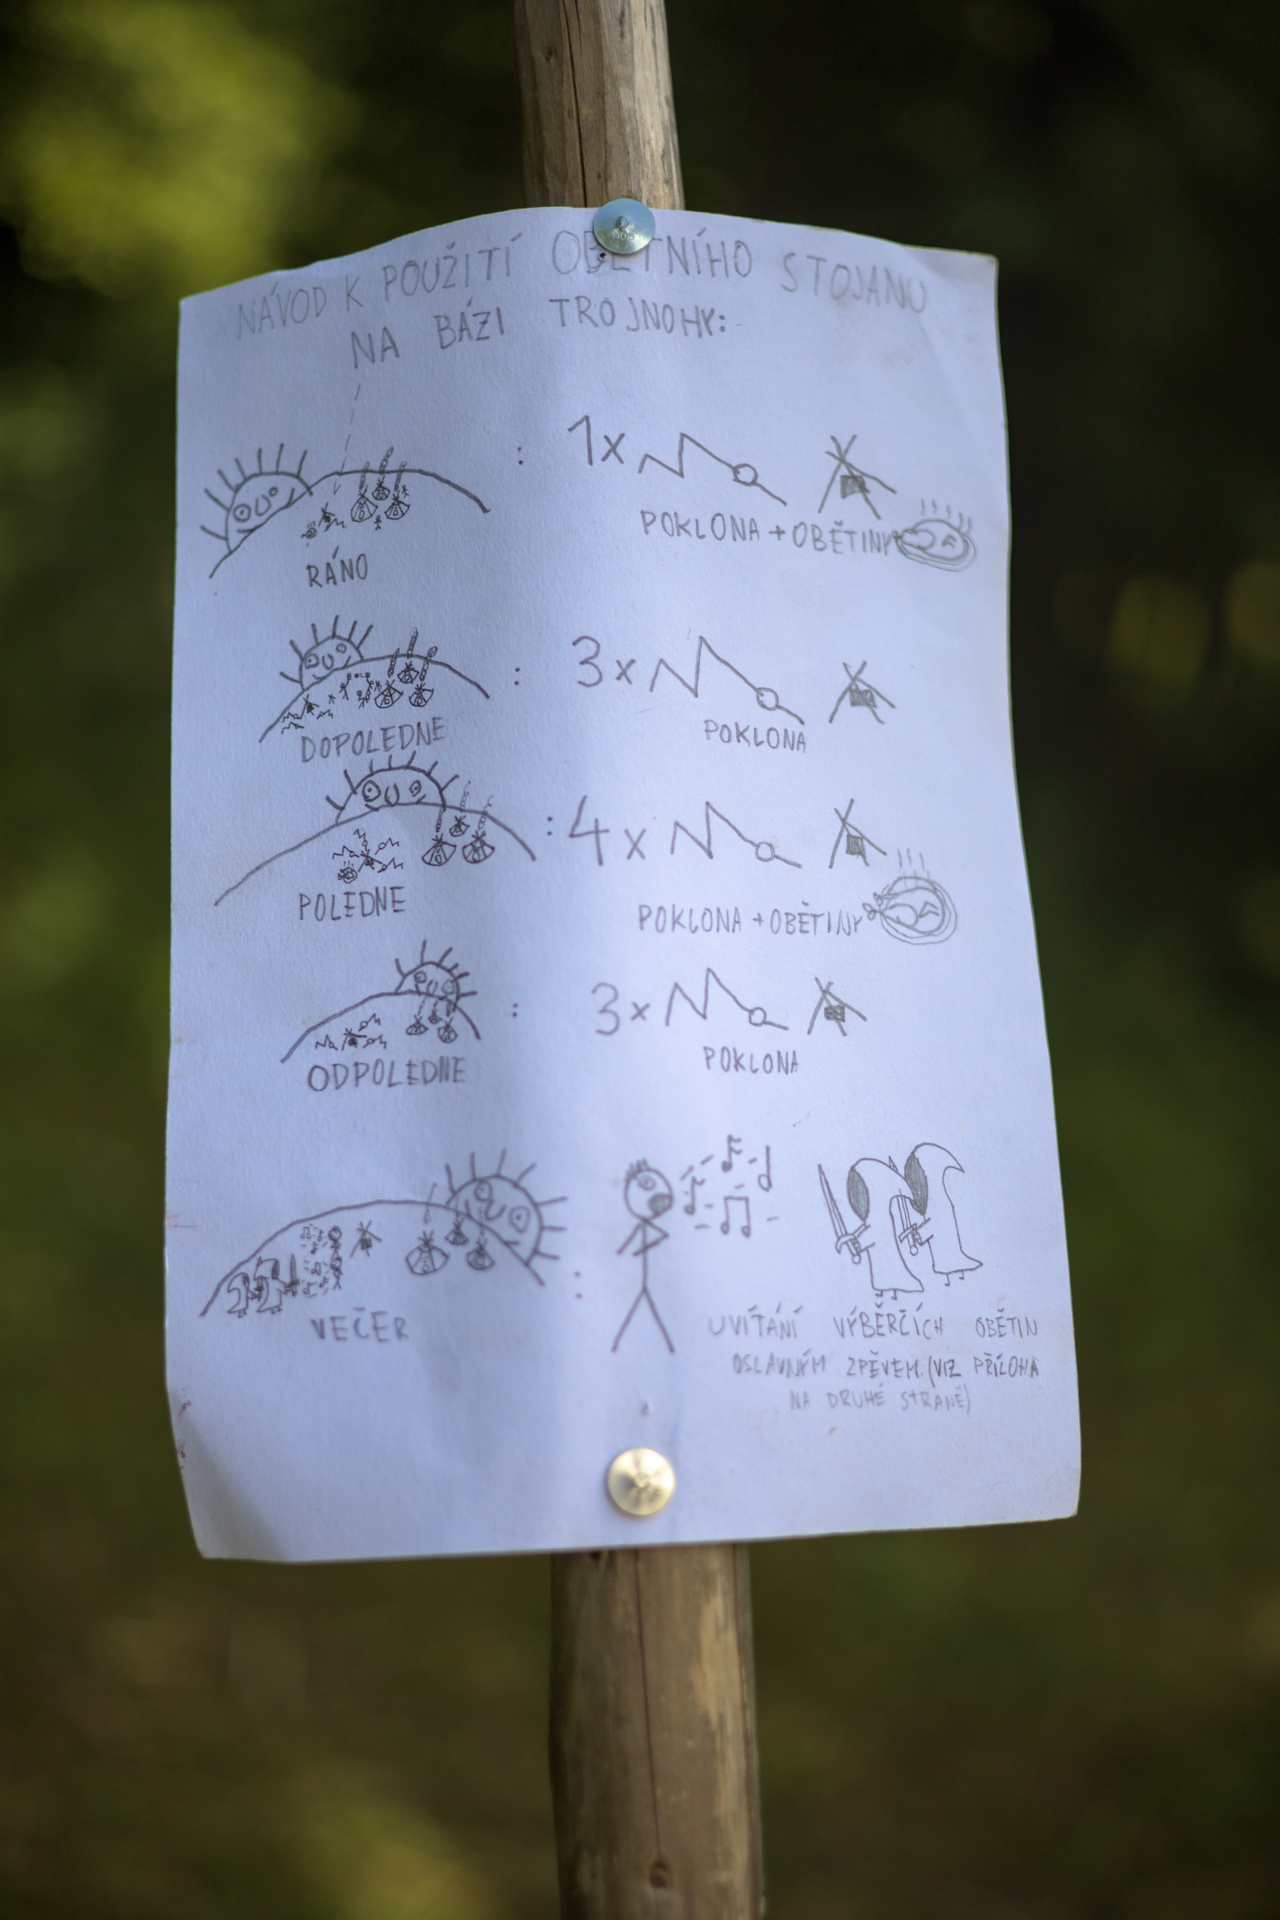 NÁVOD K POUŽITÍ OBĚTNÍHO STOJANU
NA BÁZI TROJNOHY:
: 1x
POKLONA + OBĚTINY
RÁNO
: 3x
POKLONA
DOPOLEDNE
: 4x
POKLONA + OBĚTINY
POLEDNE
: 3x
POKLONA
ODPOLEDNE
:
VEČER
UVÍTÁNÍ VÝBĚRČÍCH OBĚTIN
OSLAVNÝM ZPĚVEM (VIZ PŘÍLOHA
NA DRUHÉ STRANĚ)